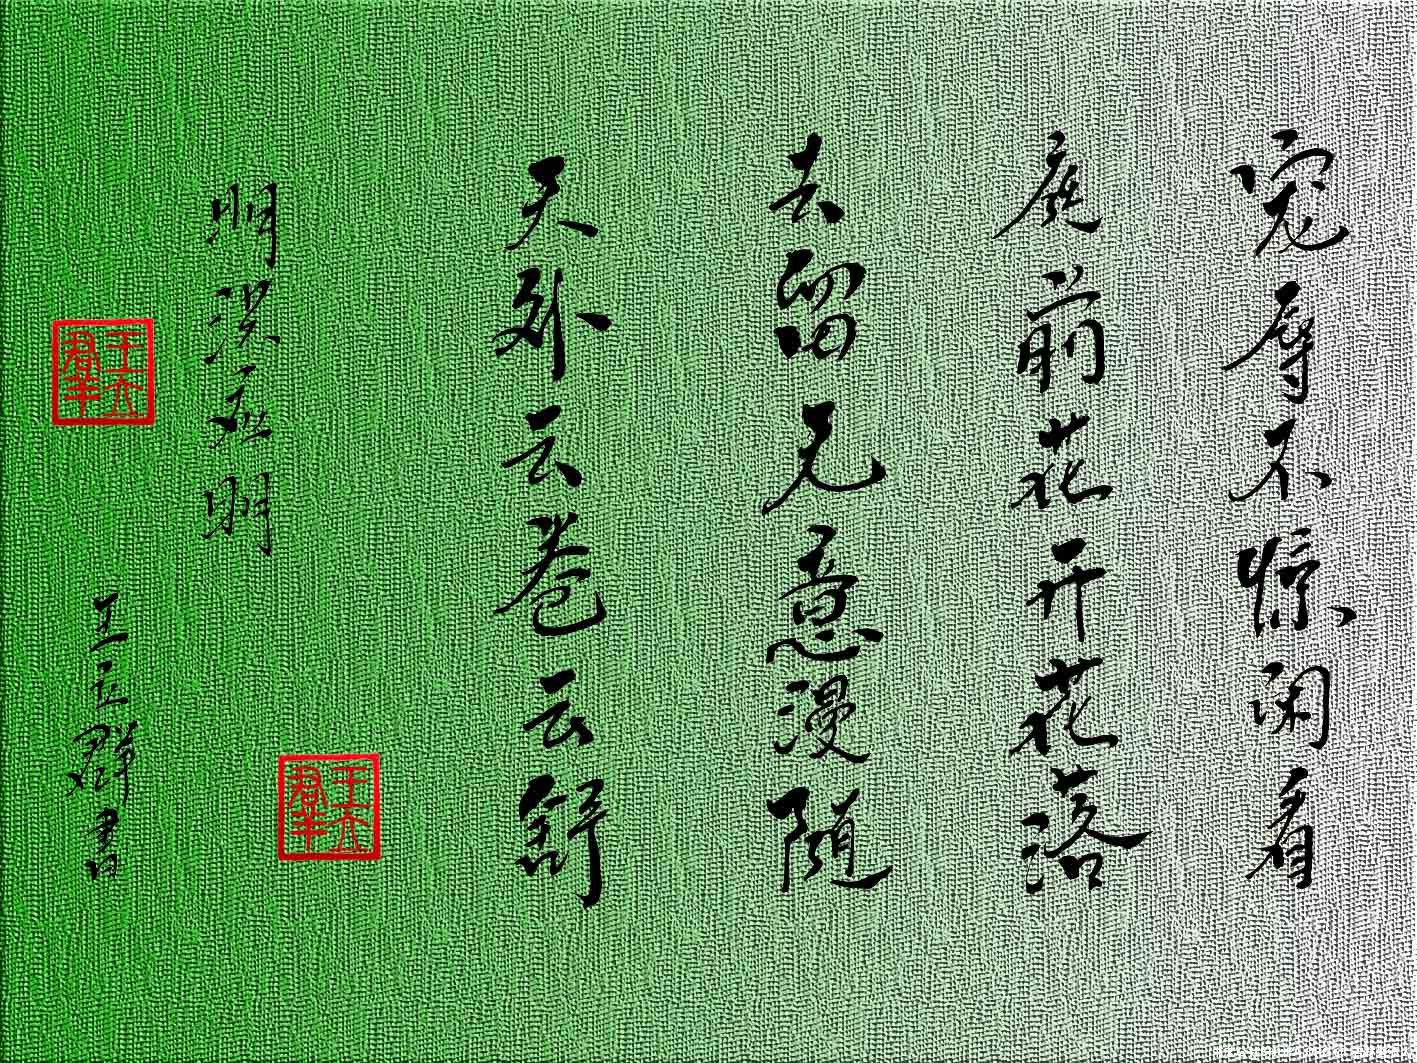 宠辱不惊闲看
庭前花开花落
去留无意漫随
天外云卷云舒
明洪应明
王立群書
王立羣
王立羣